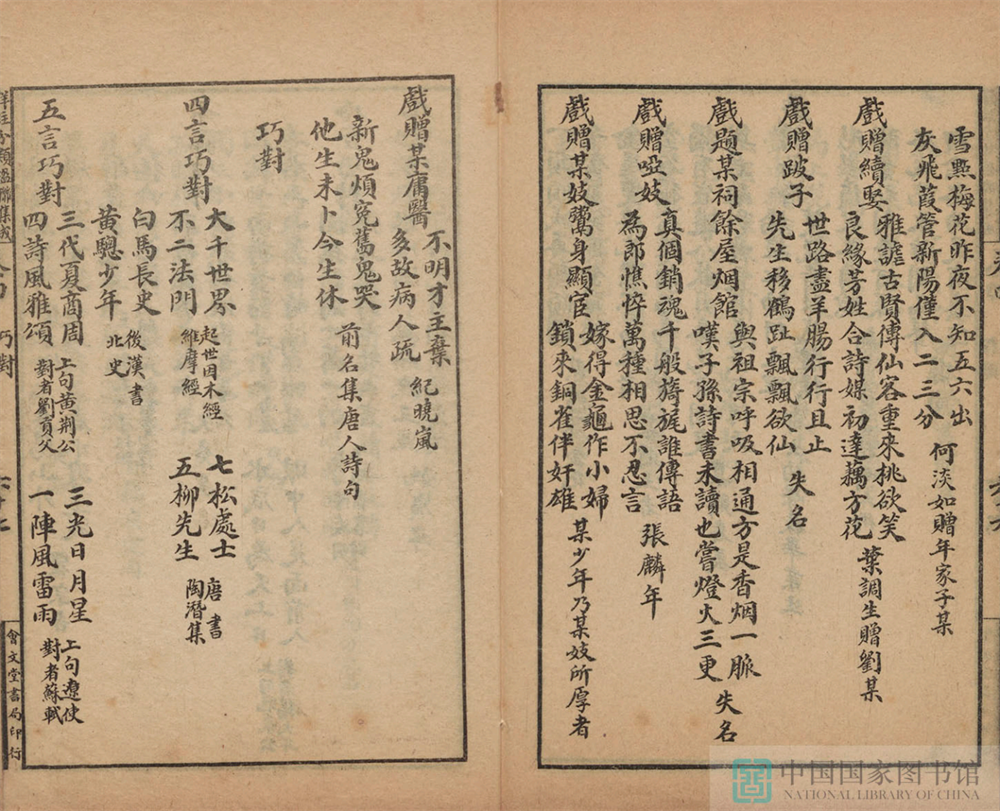 雪點梅花昨夜不知五六出
灰飛葭管新陽僅入二三分
何淡如贈年家子某
戲贈續娶
雅謔古賢傳仙客重來桃欲笑
良緣芳姓合詩媒初達藕方花
葉調生贈劉某
戲贈跛子
世路盡羊腸行行且止
先生移鶴趾飄飄欲仙
失名
戲題某祠餘屋烟館
與祖宗呼吸相通方是香烟一脈
嘆子孫詩書未讀也嘗燈火三更
失名
戲贈啞妓
真個銷魂千般旖旎誰傳語
為郎憔悴萬種相思不忍言
張麟年
戲贈某妓鬻身顯宦
嫁得金龜作小婦
鎖來銅雀伴奸雄
某少年乃某妓所厚者
戲贈某庸醫
不明才主棄
多故病人疏
紀曉嵐
新鬼煩冤舊鬼哭
他生未卜今生休
前名集唐人詩句
巧對
四言巧對
大千世界
起世因本經
不二法門
維摩經
七松處士
唐書
五柳先生
陶潛集
白馬長史
後漢書
黃驄少年
北史
五言巧對
三代夏商周
四詩風雅頌
上句黃荆公
對者劉貢父
三光日月星
一陣風雷雨
上句遼使
對者蘇軾
巧對
會文堂書局印行
中国国家图书馆
NATIONAL LIBRARY OF CHINA